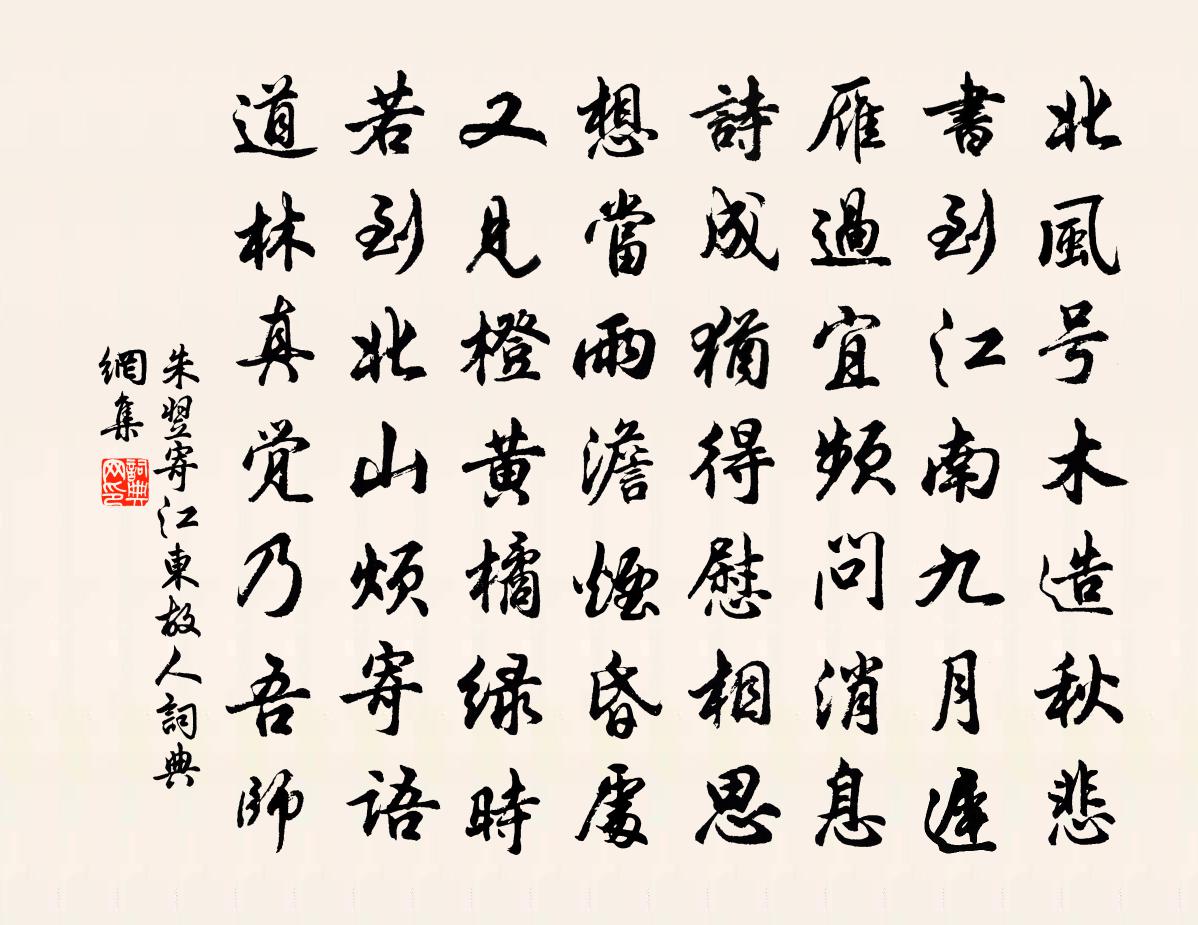 北風号木造秋悲
書到江南九月遲
雁過宜頻問消息
詩成猶得慰相思
想當雨澹煙昏處
又見橙黃橘緑時
若到北山煩寄語
道林真覚乃吾師
朱翌寄江東故人詞典
網集
詞典
网印